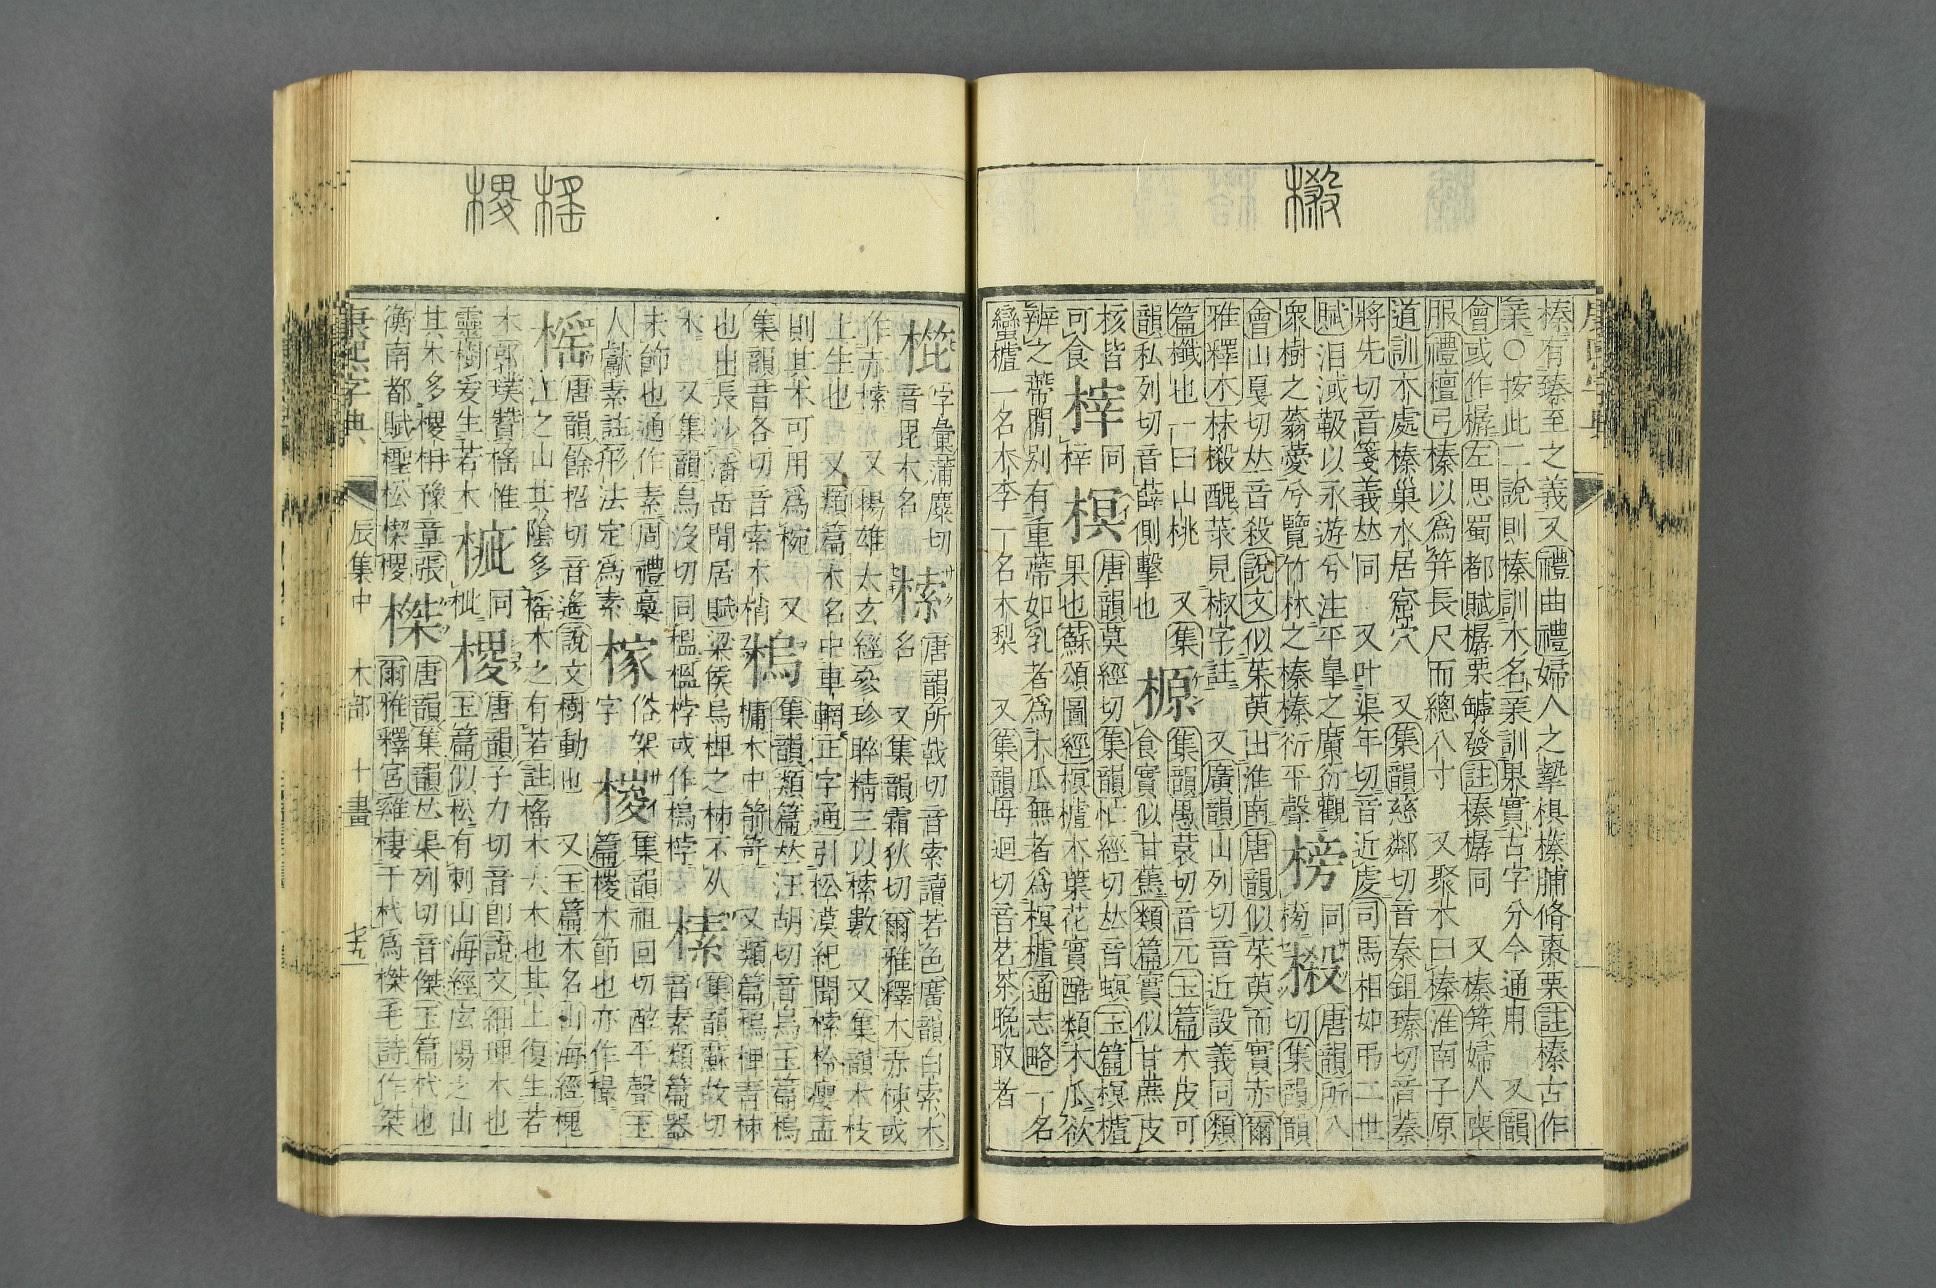 榛有臻至之義又禮曲禮婦人之摯椇榛脯脩棗栗註榛古作
亲○按此二說則榛訓木名亲訓果實古字分今通用 又韻
會或作樼左思蜀都賦樼栗罅發註榛樼同 又榛筓婦人喪
服禮檀弓榛以爲筓長尺而總八寸 又聚木曰榛淮南子原
道訓木處榛巢水居窟穴 又集韻慈鄰切音秦鉏臻切音蓁
將先切音箋義𠀤同 又叶渠年切音近虔司馬相如弔二世
賦汨淢靸以永逝兮注平臯之廣衍觀
衆樹之蓊薆兮覽竹林之榛榛衍平聲 榜 同搒 樧 唐韻所八切集韻韻
會山戛切𠀤音殺說文似茱萸出淮南唐韻似茱萸而實赤爾
雅釋木抹樧醜莍見椒字註 又廣韻山列切音近設義同類
篇櫼也一曰山桃 又集
韻私列切音薛側擊也 榞 集韻愚袁切音元玉篇木皮可食實似甘蕉類篇實似甘蔗皮
核皆
可食 榟 同梓 榠 唐韻莫經切集韻忙經切𠀤音螟玉篇榠樝果也蘇頌圖經榠樝木葉花實酷類木瓜欲
辨之蔕閒別有重蔕如乳者爲木瓜無者爲榠樝通志略一名
蠻樝一名木李一名木梨 又集韻母迥切音茗茶晚取者
康熙字典
榌 字彙蒲糜切音毘木名 榡 唐韻所戟切音索讀若色廣韻白索木名 又集韻霜狄切爾雅釋木赤棟或
作赤榡 又揚雄太玄經參珍睟精三以榡數 又集韻木枝
上生也 又類篇木名中車輞正字通引松漠紀聞榡柃癭盂
則其木可用爲椀 又
集韻昔各切音索木梢 槝 集韻類篇𠀤汪胡切音烏玉篇槝槦木中箭笴 又類篇槝椑靑柿
也出長沙潘岳閒居賦梁侯烏椑之柿不从
木 又集韻烏沒切同榲榲桲或作槝桲 榡 集韻蘇故切音素類篇器
未飾也通作素周禮稾
人獻素註形法定爲素 榢 俗架字 㮨 集韻祖回切酔平聲玉篇㮨木節也亦作樶
榣 唐韻餘招切音遙說文樹動也 又玉篇木名山海經槐
江之山其陰多榣木之有若註榣木大木也其上復生若
木郭璞贊榣惟
靈樹爰生若木 㯃 同枇 㮨 唐韻子力切音卽說文細理木也玉篇似松有刺山海經
其木多㮨枏豫章張
衡南都賦檉松楔㮨 榤 唐韻集韻𠀤渠列切音傑玉篇杙也爾雅釋宮雞棲于杙爲榤毛詩作桀
康熙字典 辰集中 木部 十畫 七十九